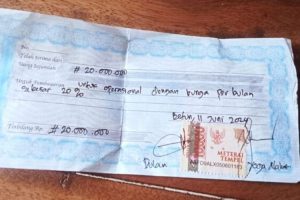 No.
Telah terima dari
Uang Sejumlah # 20.000.000
Untuk Pembayaran untuk operasional dengan bunga per bulan
sebesar 20 %
Betun, 11 Juni 2024
Terbilang Rp. # 20.000.000
METERAI
TEMPEL